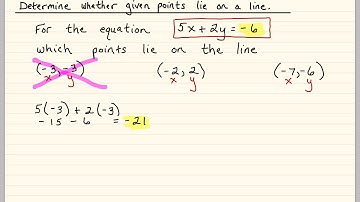 Determine whether given points lie on a line.
For the equation 5x + 2y = -6
which points lie on the line
(-3, -3) (-2, 2) (-7, -6)
x y x y x y
5(-3) + 2(-3)
-15 - 6 = -21